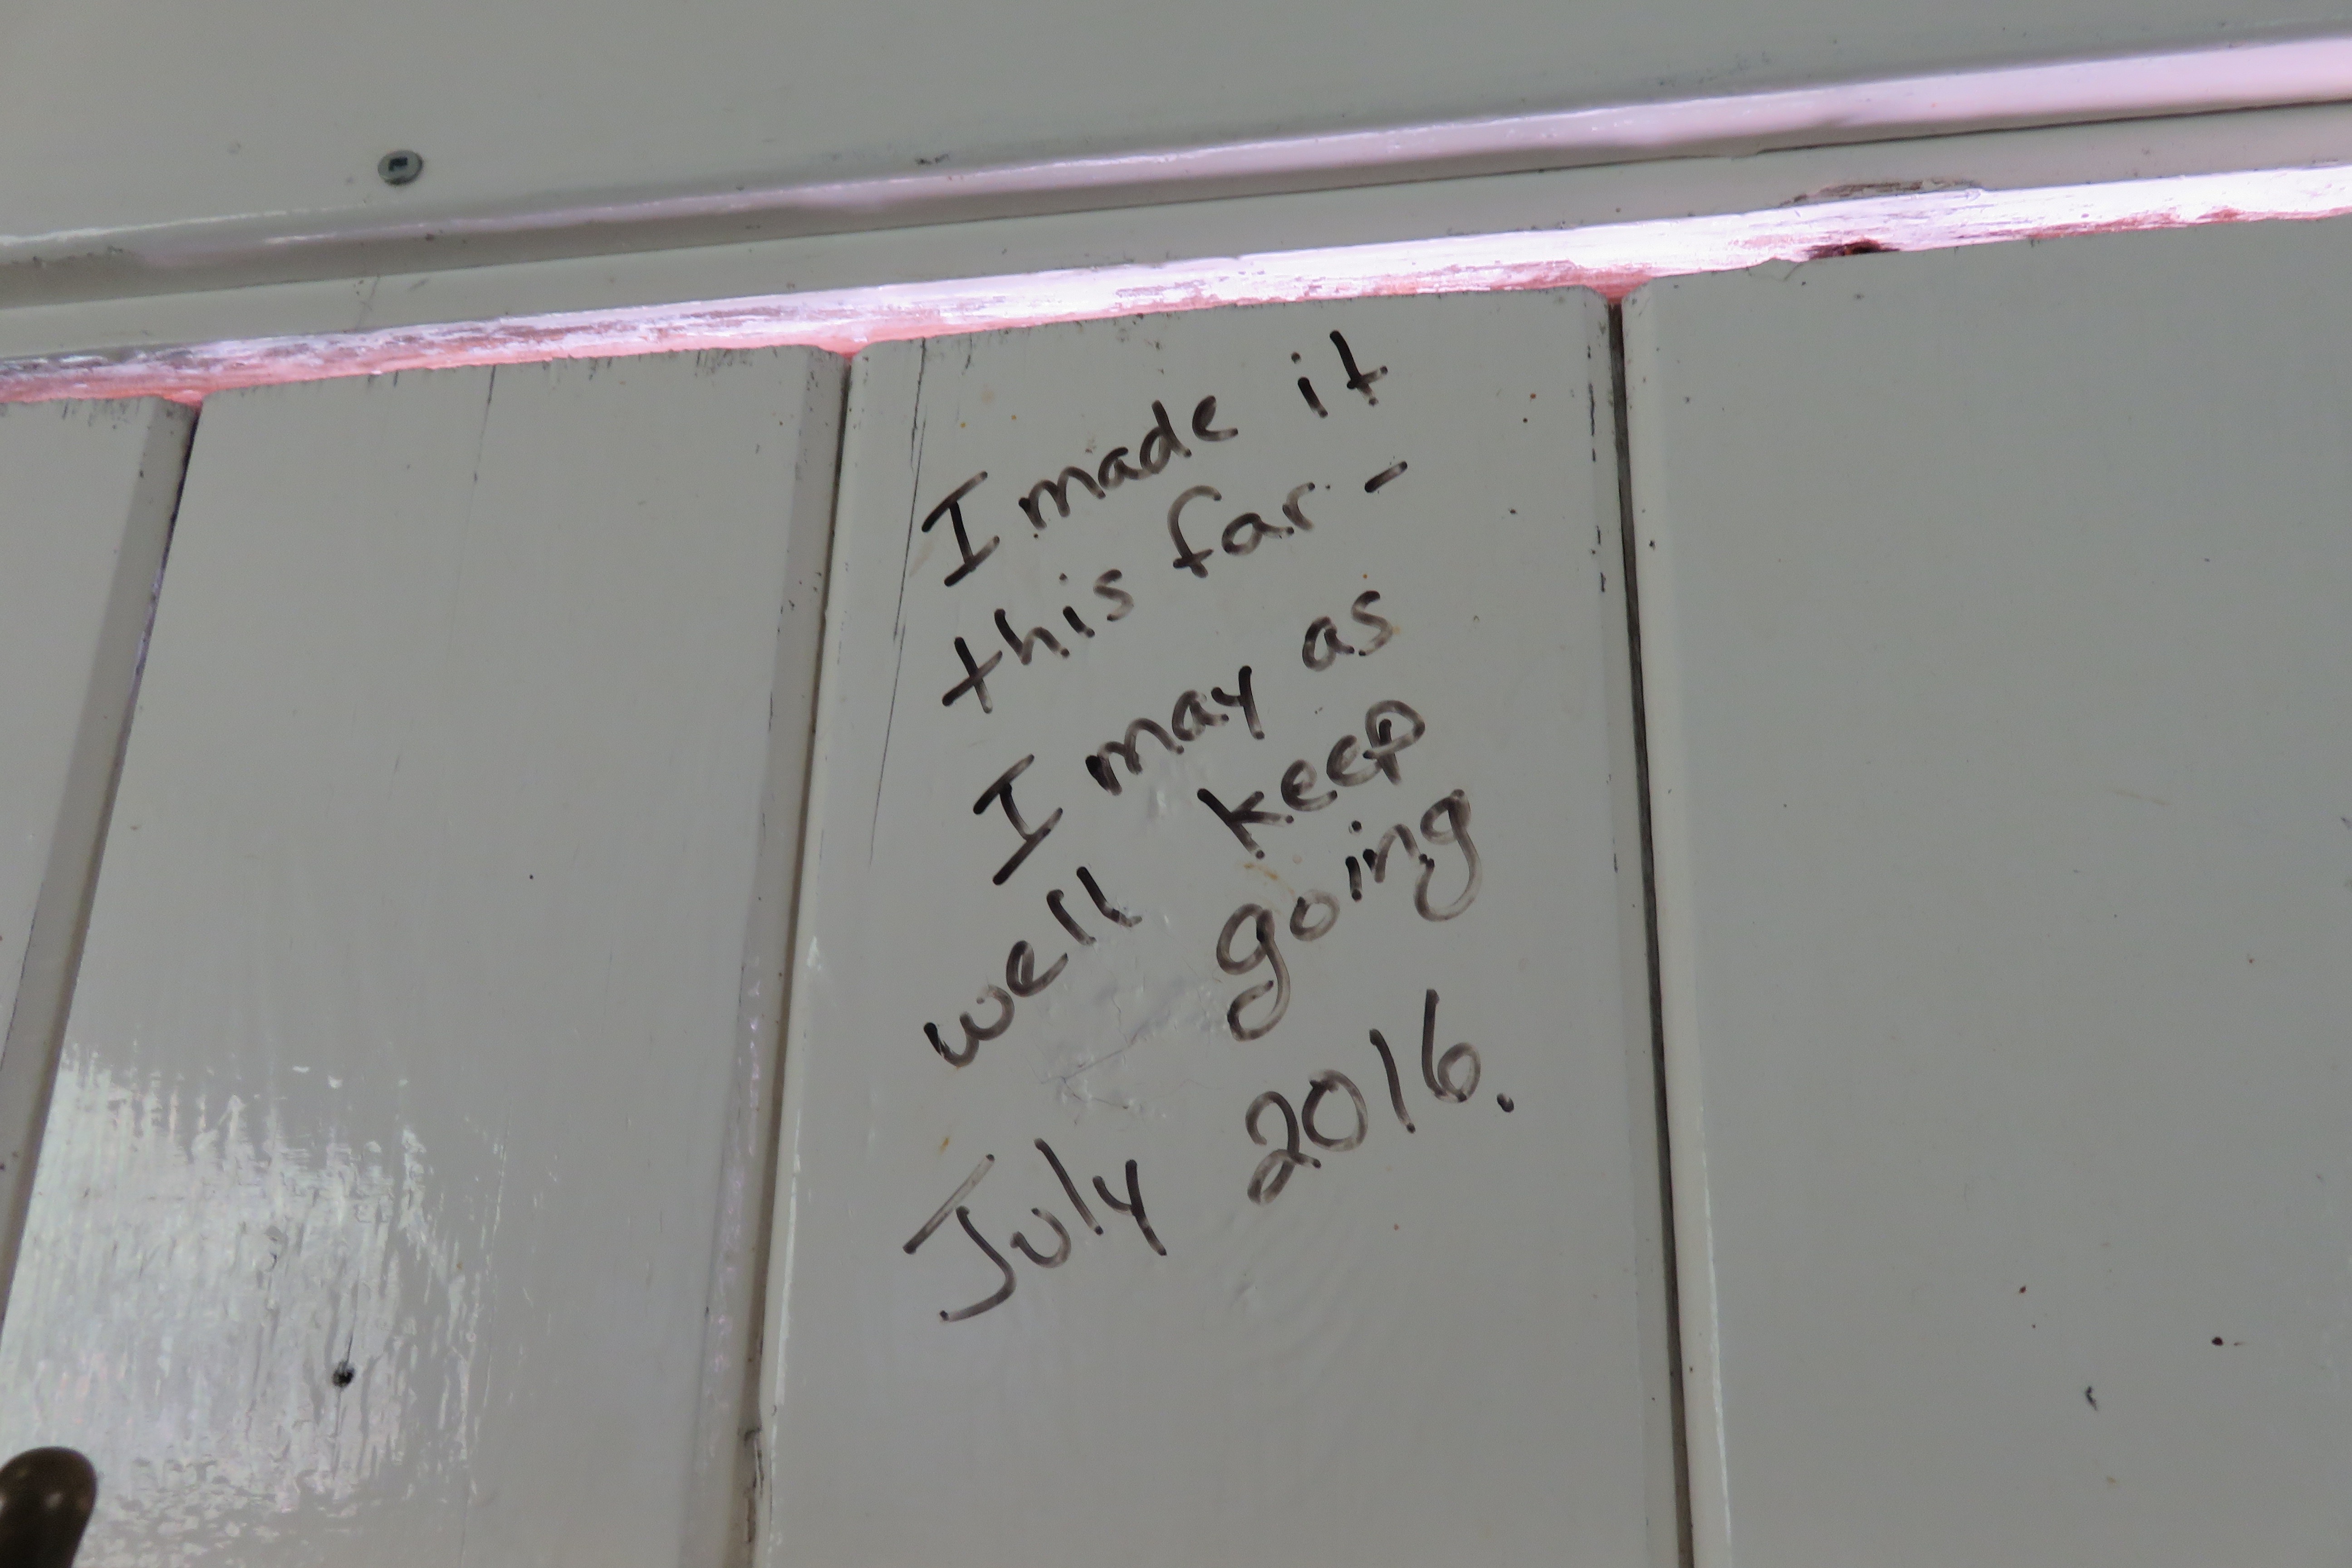 I made it
this far -
I may as
well keep
going
July 2016.